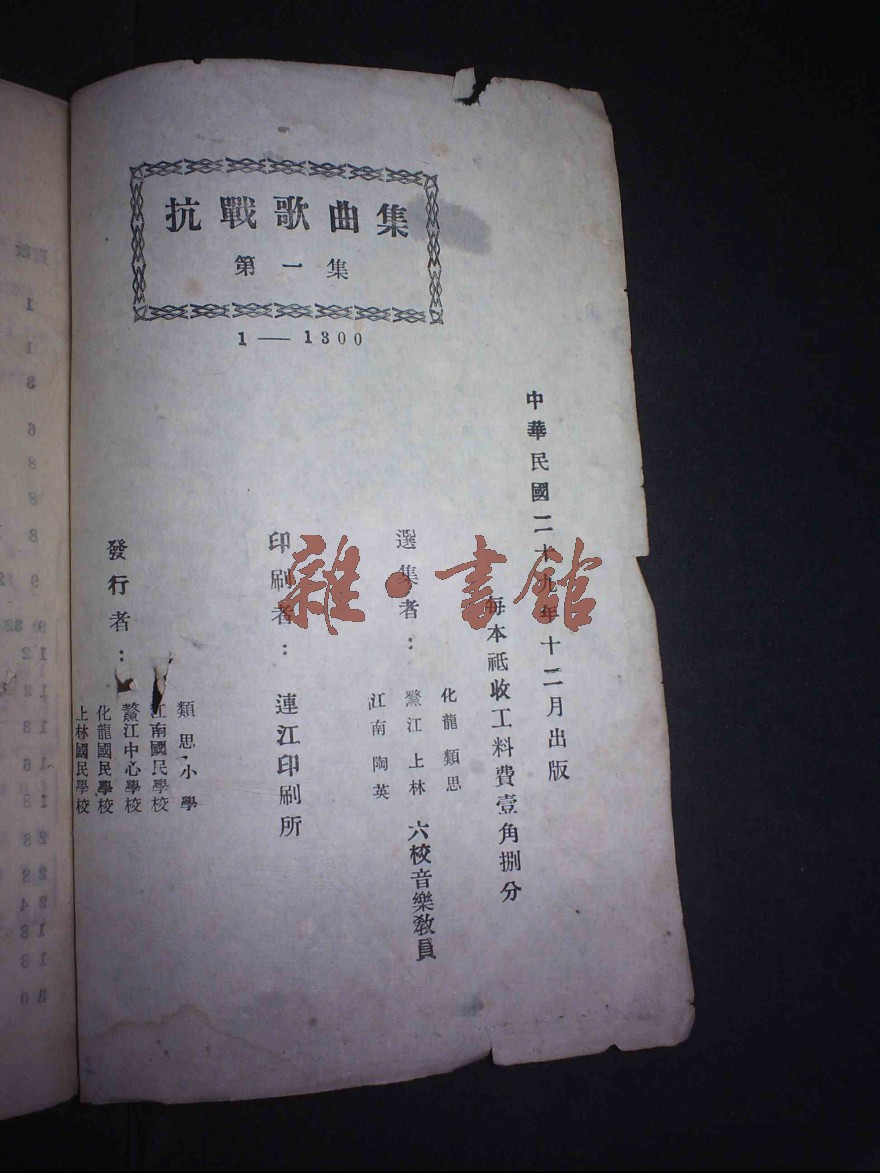 抗戰歌曲集
第一集
1 — 1300
中華民國二十九年十二月出版
每本祗收工料費壹角捌分
選集者：
化龍 類思
鰲江 上林
江南 陶英
六校音樂教員
印刷者：連江印刷所
發行者：
類思小學
江南國民學校
鰲江中心學校
化龍國民學校
上林國民學校
雜·書館
頁數
1
1
3
6
8
8
8
9
9
12